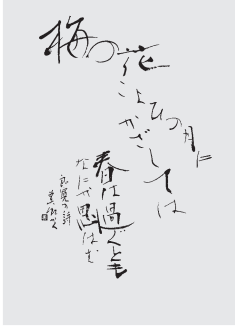 梅の花
こよひの月に
かざしては
春は過ぐとも
なにか思はむ
良寛の詩